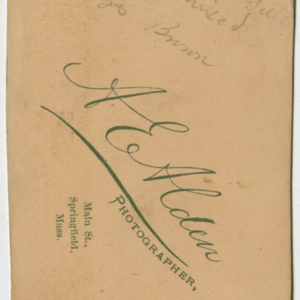 Brown
A E Alden
PHOTOGRAPHER,
Main St.,
Springfield,
Mass.